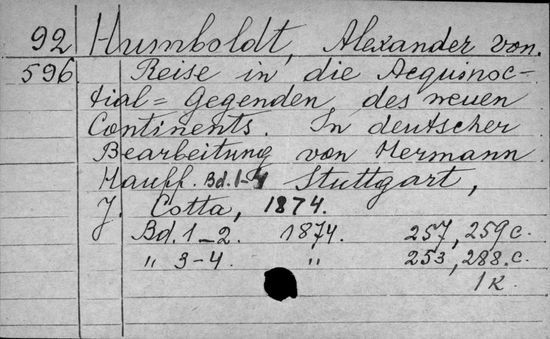 92 Humboldt, Alexander von.
596 Reise in die Aequinoc-
tial= Gegenden des neuen
Continents. In deutscher
Bearbeitung von Hermann
Hauff. Bd. 1-4 Stuttgart,
J. Cotta, 1874.
Bd. 1-2. 1874. 257, 259 c.
" 3-4. " 253, 288. c.
1 K.